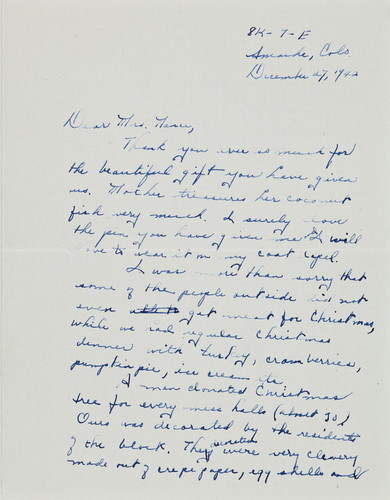 8K-7-E
Amache, Colo
December 27, 1942
Dear Mrs.
Thank you ever so much for
the beautiful gift you have given
us. Mother treasures her coconut
fish very much. I surely love
the pen you have given me & I will
love to wear it on my coat lapel.
I was more than sorry that
some of the people outside did not
even get meat for Christmas,
while we had regular Christmas
dinner with turkey, cramberries,
pumpkin pie, ice cream etc.
A man donated Christmas
tree for every mess halls (about 30)
Ours was decorated by the residents
of the block. They were very cleverly
made out of crepe paper, egg shells and